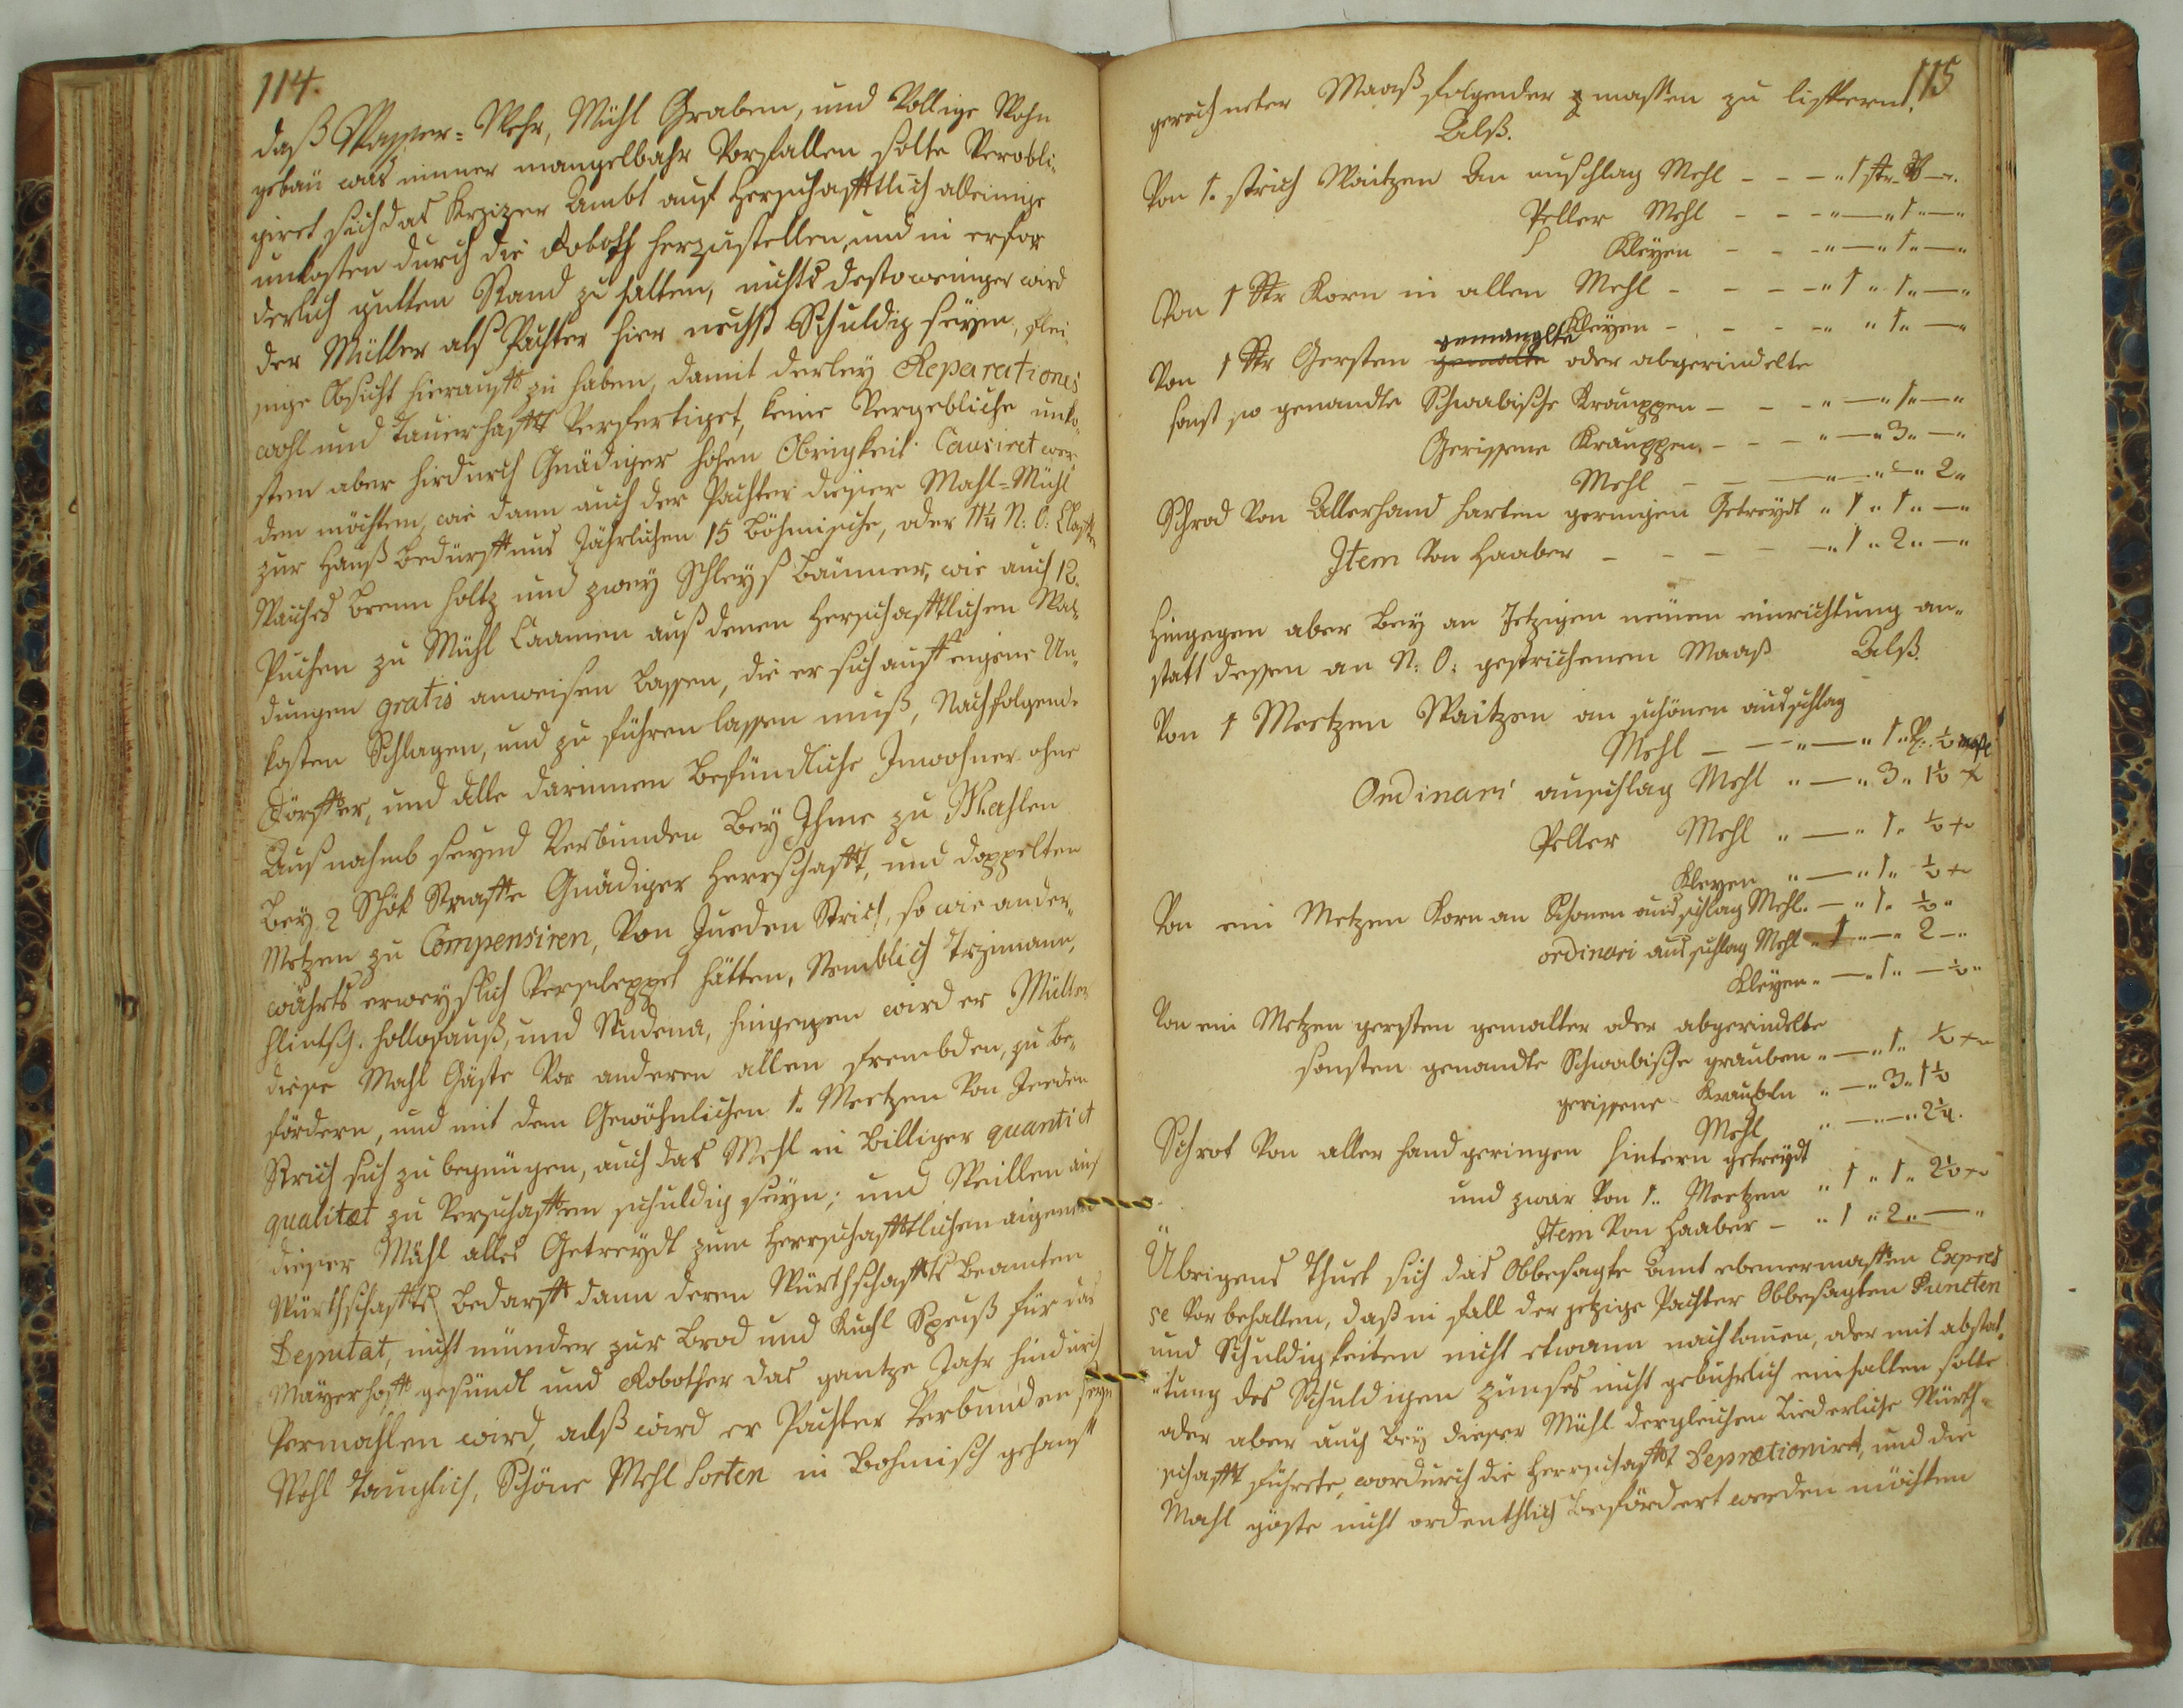 114.
daß Wasser-Wehr, Mühl Graben, und Völlige Wohn
gebäu was immer mangelbahr Vorfallen solte Verobli-
giret sich das Ambt auf Herrschafftlich alleinige
unkosten durch die Roboth herzustellen, und in erfor
derlich gutten Stand zu halten, nichts destoweniger wird
der Müller als Pachter hier nechst Schuldig seyn, flei-
sige Obsicht hierauff zu haben, damit derley Reparationes
wohl und Dauerhafft Verfertiget, keine Vergebliche unko-
sten aber hirdurch Gnädiger hohen Obrigkeit Causiret wer
den möchten, wie dann auch der Pachter dieser Mahl-Mühl
zur Hauß bedürfftnus Jährlichen 15 Böhmische, oder 11¼ N: Ö: Claffter
Waiches Brenn holtz und zwey Schleyß bäumer, wie auch 12.
Puchen zu Mühl Caamen auß denen Herrschafftlichen Wal-
dungen gratis anweisen lassen, die er sich auff eigene Un-
kosten Schlagen, und zu führen lassen muß, Nachfolgende
Dörffer, und alle darinnen befündliche Inwohner ohne
Außnahmb seynd Verbunden bey Ihme zu Mahlen
bey 2 Schok Straffe Gnädiger Herrschafft, und doppelten
Metzen zu Compensiren, Von Jueden Strich, so wie ander-
währts erweyslich Verschleppet hätten, Nemblich Trzimann,
hollofauß, und Studena, hingegen wird er Müller
diese Mahl Gäste Vor anderen allen frembden, zu be-
fördern, und mit dem Gewöhnlichen 1. Meetzen Von Jeeden
Strich sich zu begnügen, auch das Mehl in Billiger quantitet
qualitæt zu Verschaffen schuldig seyn; und Weillen auf
dieser Mühl alles Getreydt zum Herrschafftlichen aigenen
Würthschaffts bedarff dann deren Würthschaffts beamten
Deputat, nicht münder zur Brod und Kuchl Speiß für das
Mayerhoff gesündl und Robother das gantze Jahr hindurch
Vermahlen wird, alß wird er Pachter Verbunden seyn
Wohl Tauglich, Schöne Mehl Sorten in Bohmisch gehauff
115
gerechneter Maaß folgender massen zu liffern.
Alß.
Von 1. strich Waitzen An auschlag Mehl - - - „ 1 str.
Peller Mehl - - - „ — „ 1 „ — „
Kleyen - - „ — „ 1 „ — „
Von 1 Str Korn in allen Mehl - - - - „ 1 „ 1 „ — „
Kleyen - - - - „ „ 1 „ — „
gemangelte
Von 1 Str Gersten gemalte oder abgerindelte
sonst so genandte Schwabische Krauppen - - - „ — „ 1 „ — „
Gerissene Krauppen - - - „ — „ 3 „ — „
Mehl - - — „ — „ — „ 2 „
Schrod Von Allerhand harten geringen Getreydt „ 1 „ 1 „ — „
Item Von Haaber - - - - - „ 1 „ 2 „ — „
Hingegen aber bey an Jetzigen neuen einrichtung an-
statt dessen an N: Ö: gestrichenem Maaß Alß.
Von 1 Meetzen Waitzen an schönen ausschlag
Mehl - - - „ — „ 1 „ ½
Ordinari auschlag Mehl „ — „ 3 „ 1½
Peller Mehl „ — „ 1 „ ½
Kleyen „ — „ 1 „ ½
Von ein Metzen Korn an Schönen ausschlag Mehl. — „ 1 „ ½ „
ordinari ausschlag Mehl „ 1 „ — „ 2 — „
Kleyen „ — „ 1 „ — ½ „
Von ein Metzen gersten gemalter oder abgerindelte
sonsten genandte Schwabische grauben „ — „ 1 „ ½
gerissene Kraupeln „ — „ 3 „ 1½
Mehl „ — „ — „ 2¼.
Schrot Von aller hand geringen hintern getreydt
und zwar Von 1. Meetzen „ 1 „ 1 „ 2½
Item Von Haaber - „ 1 „ 2 „ — „
Übrigens Thuet sich das Obbesagte Amt ebenermassen Expres
se Vor behalten, daß in fall der jetzige Pachter Obbesagten Puncten
und Schuldigkeiten nicht etwann nachkomen, oder mit abstat-
tung des Schuldigen Zünses nicht gebührlich einhalten solte
oder aber auch bey dieser Mühl dergleichen Liederliche Würth-
schafft führete, wordurch die Herrschafft Deprætioniret, und die
Mahl gäste nicht ordenthlich befördert werden möchten